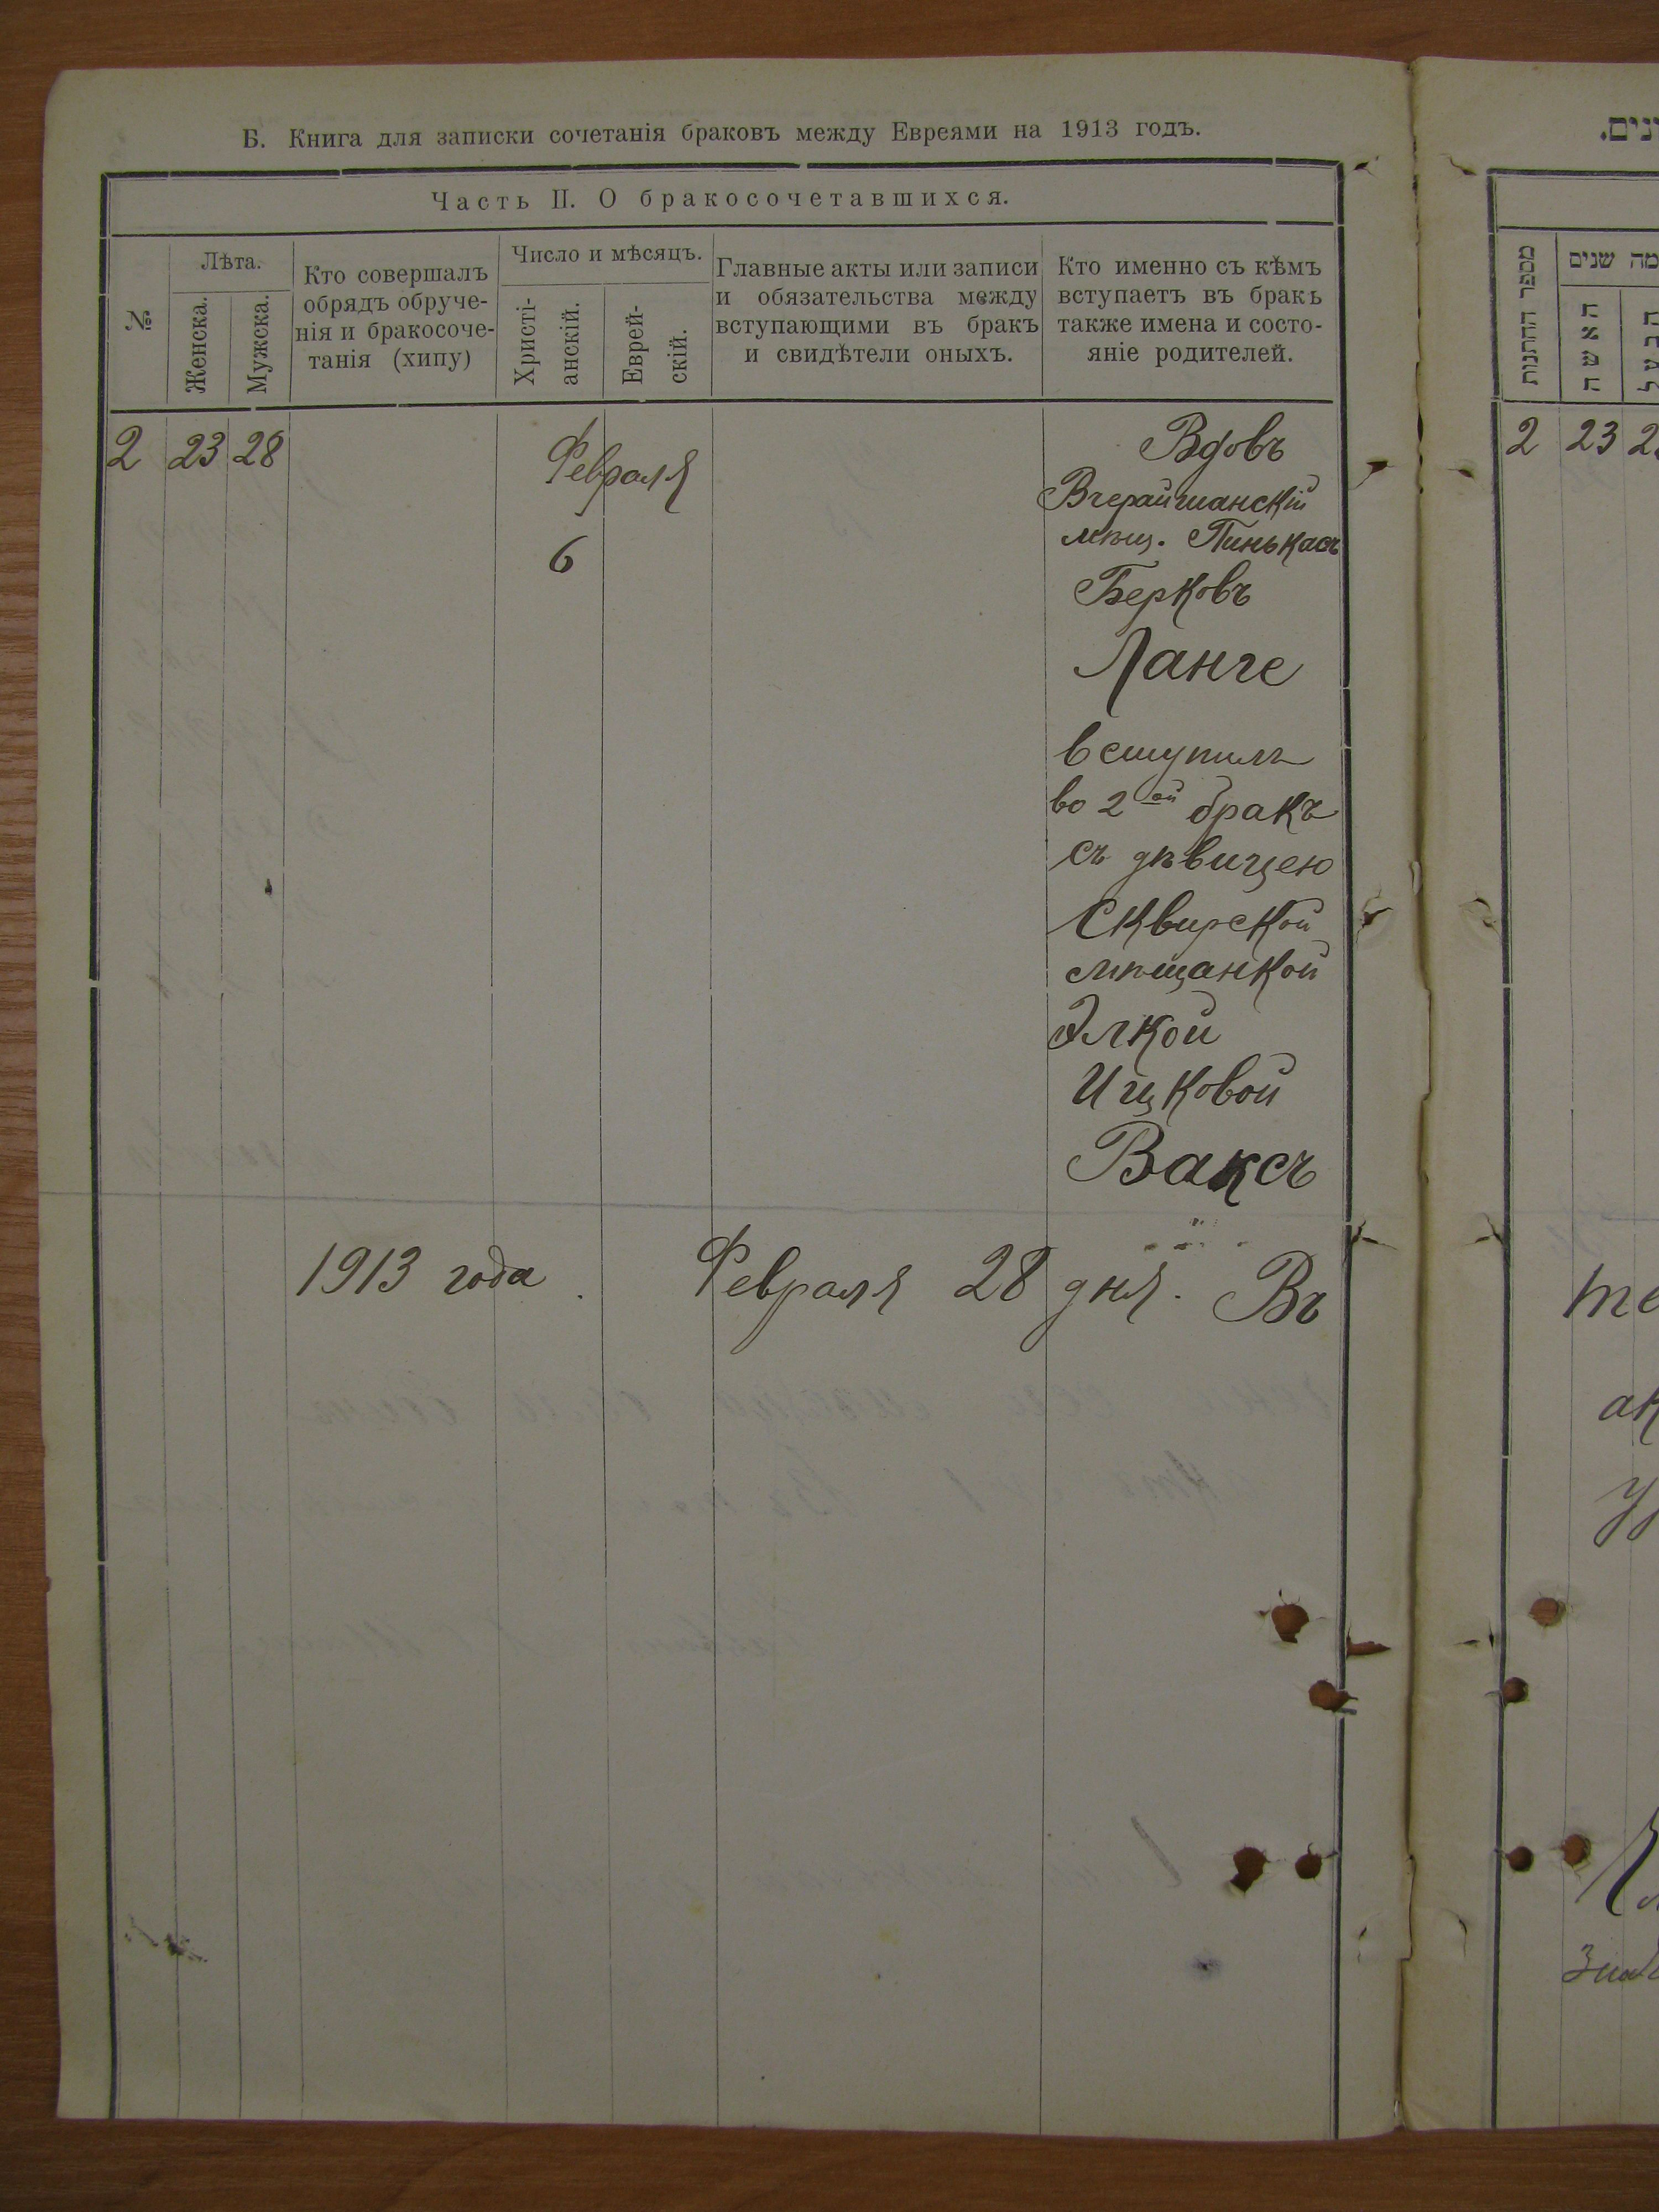 Б. Книга для записки сочетанія браковъ между Евреями на 1913 годъ.
Часть II. О бракосочетавшихся.
№
Лѣта.
Женска.
Мужска.
Кто совершалъ
обрядъ обруче-
нія и бракосоче-
танія (хипу)
Число и мѣсяцъ.
Христі-
анскій.
Еврей-
скій.
Главные акты или записи
и обязательства между
вступающими въ бракъ
и свидѣтели оныхъ.
Кто именно съ кѣмъ
вступаетъ въ бракь
также имена и состо-
яніе родителей.
2 23 28
Февраля
6
Вдовъ
Вчерайшанскій
мѣщ. Пинькасъ
Берковъ
Ланге
вступилъ
во 2ой бракъ
съ дѣвицею
Сквирской
мѣщанкой
Элкой
Ицковой
Ваксъ
1913 года. Февраля 28 дня. Въ
נים.
מספר החתנות
מה שנים
האשה
הבעל
2 23